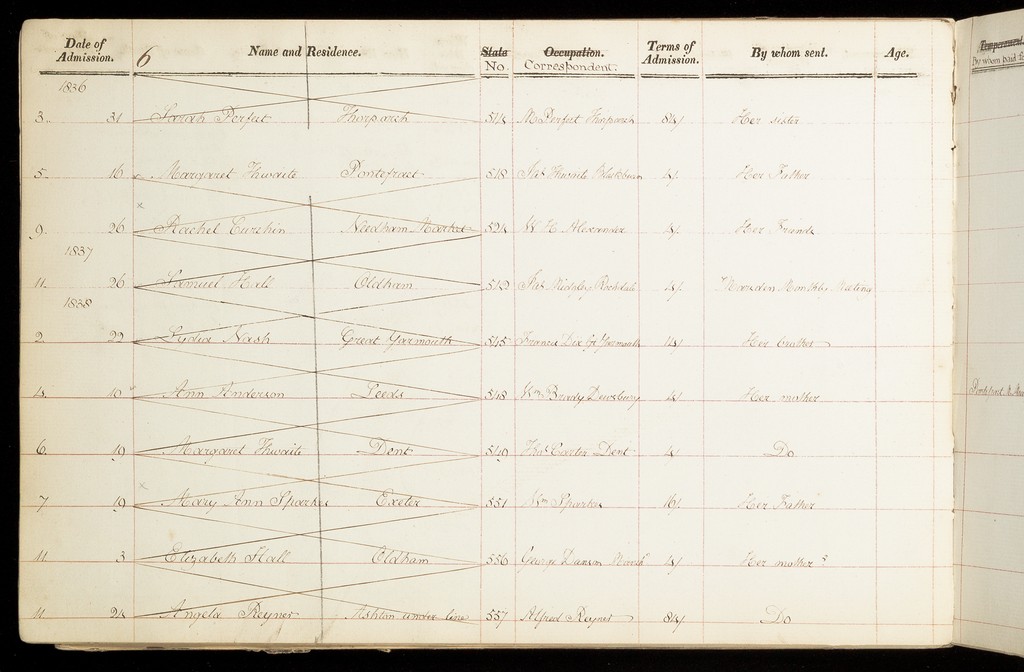 Date of Admission. 6 Name and Residence. State No. Occupation. Correspondent. Terms of Admission. By whom sent. Age.
Temperament.
By whom paid
1836
3 31 Sarah Perfect Thorparch 514 M Perfect Thorparch 8/ Her sister
5 16 Margaret Thwaite Pontefract 518 Jas Thwaite Blackburn 4/ Her Father
9 26 Rachel Needham Market 524 W H Alexander 4/ Her Friends
1837
11 26 Samuel Hall Oldham Jas Midgley Rochdale 4/ Marsden Monthly Meeting
1838
2 22 Lydia Nash Great Yarmouth 545 Francis Dix Gt Yarmouth Her brother
4 10 Ann Anderson Leeds 548 Wm Brady Dewsbury 4/ Her mother
6 19 Margaret Thwaite Dent 549 Thos Dent 4/ Do
7 19 Mary Ann Sparkes Exeter 551 Wm Sparkes 16/ Her Father
11 3 Elizabeth Hall Oldham 556 George Danson 4/ Her mother
11 24 Angela Reyner Ashton under line 557 Alfred Reyner 8/ Do